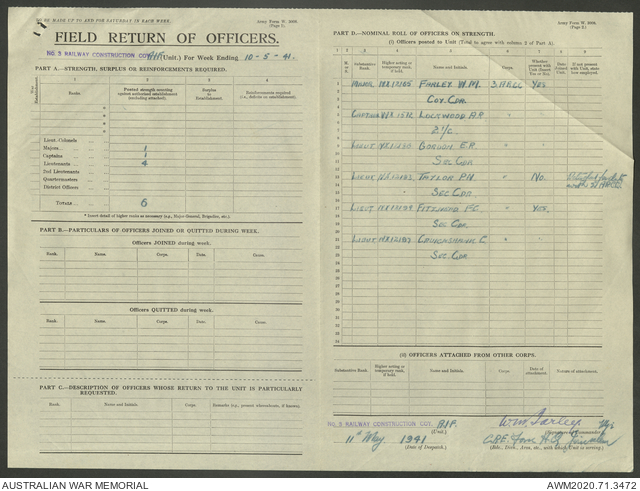 TO BE MADE UP TO AND FOR SATURDAY IN EACH WEEK.
Army Form W. 3008.
(Page 1).
FIELD RETURN OF OFFICERS.
NO. 3 RAILWAY CONSTRUCTION COY. AIF (Unit.) For Week Ending 10-5-41.
PART A.—STRENGTH, SURPLUS OR REINFORCEMENTS REQUIRED.
1 2 3 4
Ranks Posted strength counting against authorised establishment (excluding attached). Surplus to Establishment. Reinforcements required (i.e., deficits on establishment).
*
*
*
*
Lieut.-Colonels
Majors 1
Captains 1
Lieutenants 4
2nd Lieutenants
Quartermasters
District Officers
TOTALS 6
* Insert detail of higher ranks as necessary (e.g., Major-General, Brigadier, etc.)
PART B.—PARTICULARS OF OFFICERS JOINED OR QUITTED DURING WEEK.
Officers JOINED during week.
Rank. Name and Initials. Corps. Date. Cause.
Officers QUITTED during week.
Rank. Name and Initials. Corps. Date. Cause.
PART C.—DESCRIPTION OF OFFICERS WHOSE RETURN TO THE UNIT IS PARTICULARLY REQUESTED.
Rank. Name and Initials. Corps. Remarks (e.g., present whereabouts, if known).
Army Form W. 3008.
(Page 2.)
PART D.—NOMINAL ROLL OF OFFICERS ON STRENGTH.
(i) Officers posted to Unit (Total to agree with column 2 of Part A).
Substantive Rank. Higher acting or temporary rank, if held. Name and Initials. Corps. Whether present with Unit (Insert Yes or No). If not present with Unit, state how employed.
MAJOR FARLEY W.M. YES
COY. CDR.
LOCKWOOD A.R.
2 I/C
LIEUT GORDON E.R.
SEC CDR
LIEUT TAYLOR P.N. No.
SEC CDR
LIEUT YES
SEC CDR.
LIEUT CRUICKSHANK C.
SEC. CDR.
(ii) OFFICERS ATTACHED FROM OTHER CORPS.
Substantive Rank. Higher acting or temporary rank, if held. Name and Initials. Corps. Date of attachment. Nature of attachment.
NO. 3 RAILWAY CONSTRUCTION COY. AIF.
(Unit.)
W.M. Farley
11th May 1941
(Date of Despatch.)
AUSTRALIAN WAR MEMORIAL
AWM2020.71.3472